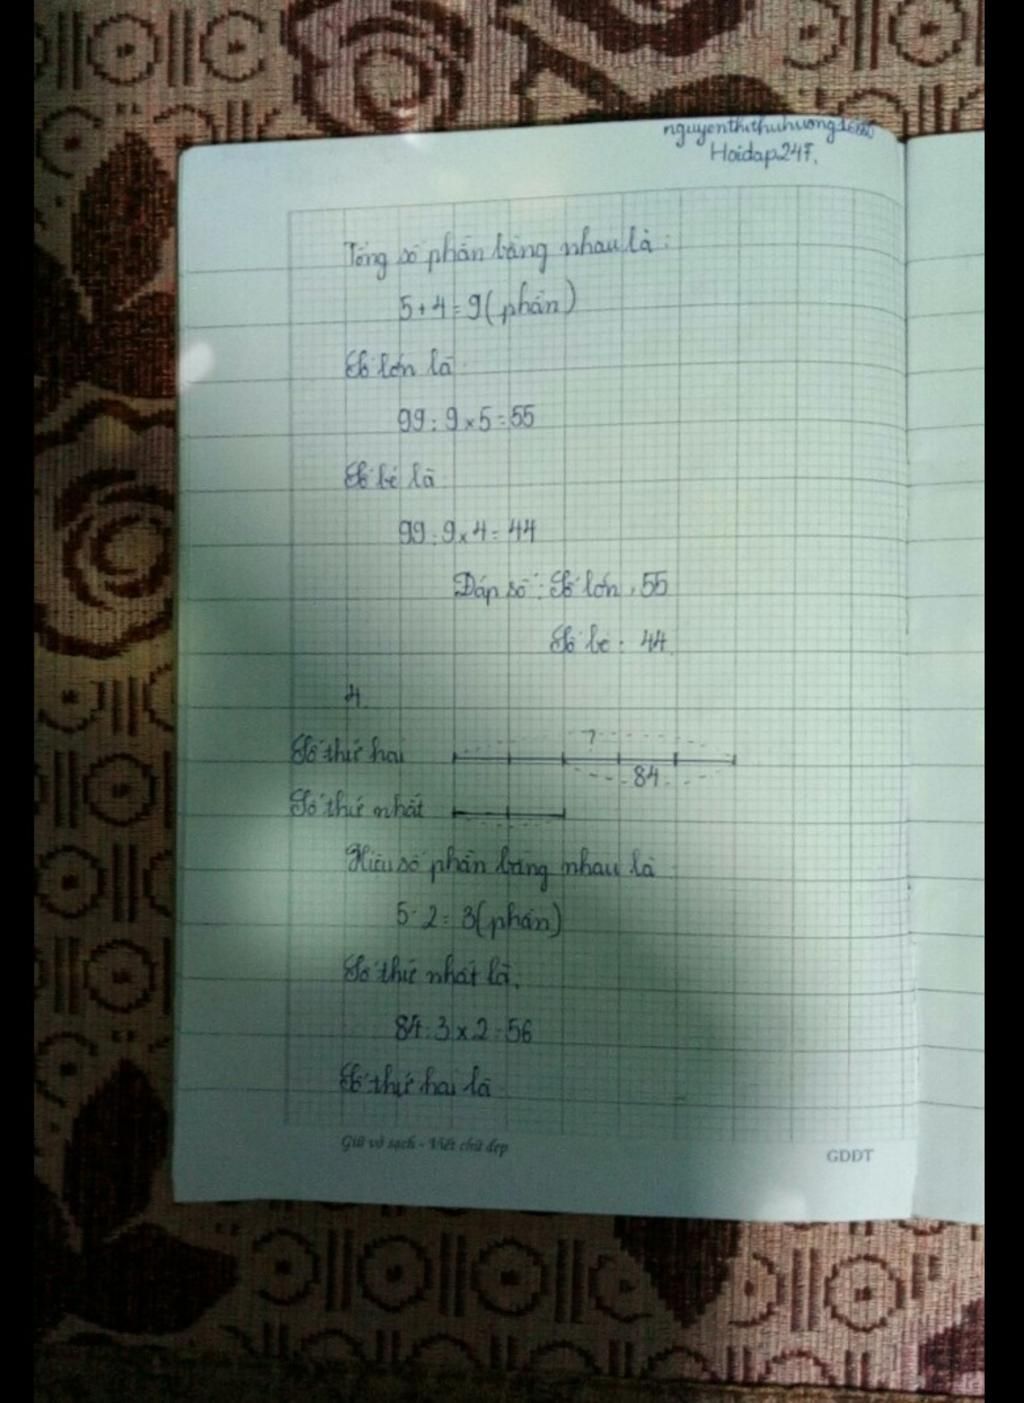 nguyenthithuhuong16
Hoidap247.
Tổng số phần bằng nhau là:
5+4=9(phần)
Số lớn là
99:9x5=55
Số bé là
99:9x4=44
Đáp số: Số lớn: 55
Số bé: 44.
4.
Số thứ hai
?
84
Số thứ nhất
Hiệu số phần bằng nhau là
5-2=3(phần)
Số thứ nhất là.
84:3x2=56
Số thứ hai là
Giữ vở sạch - Viết chữ đẹp
GDDT